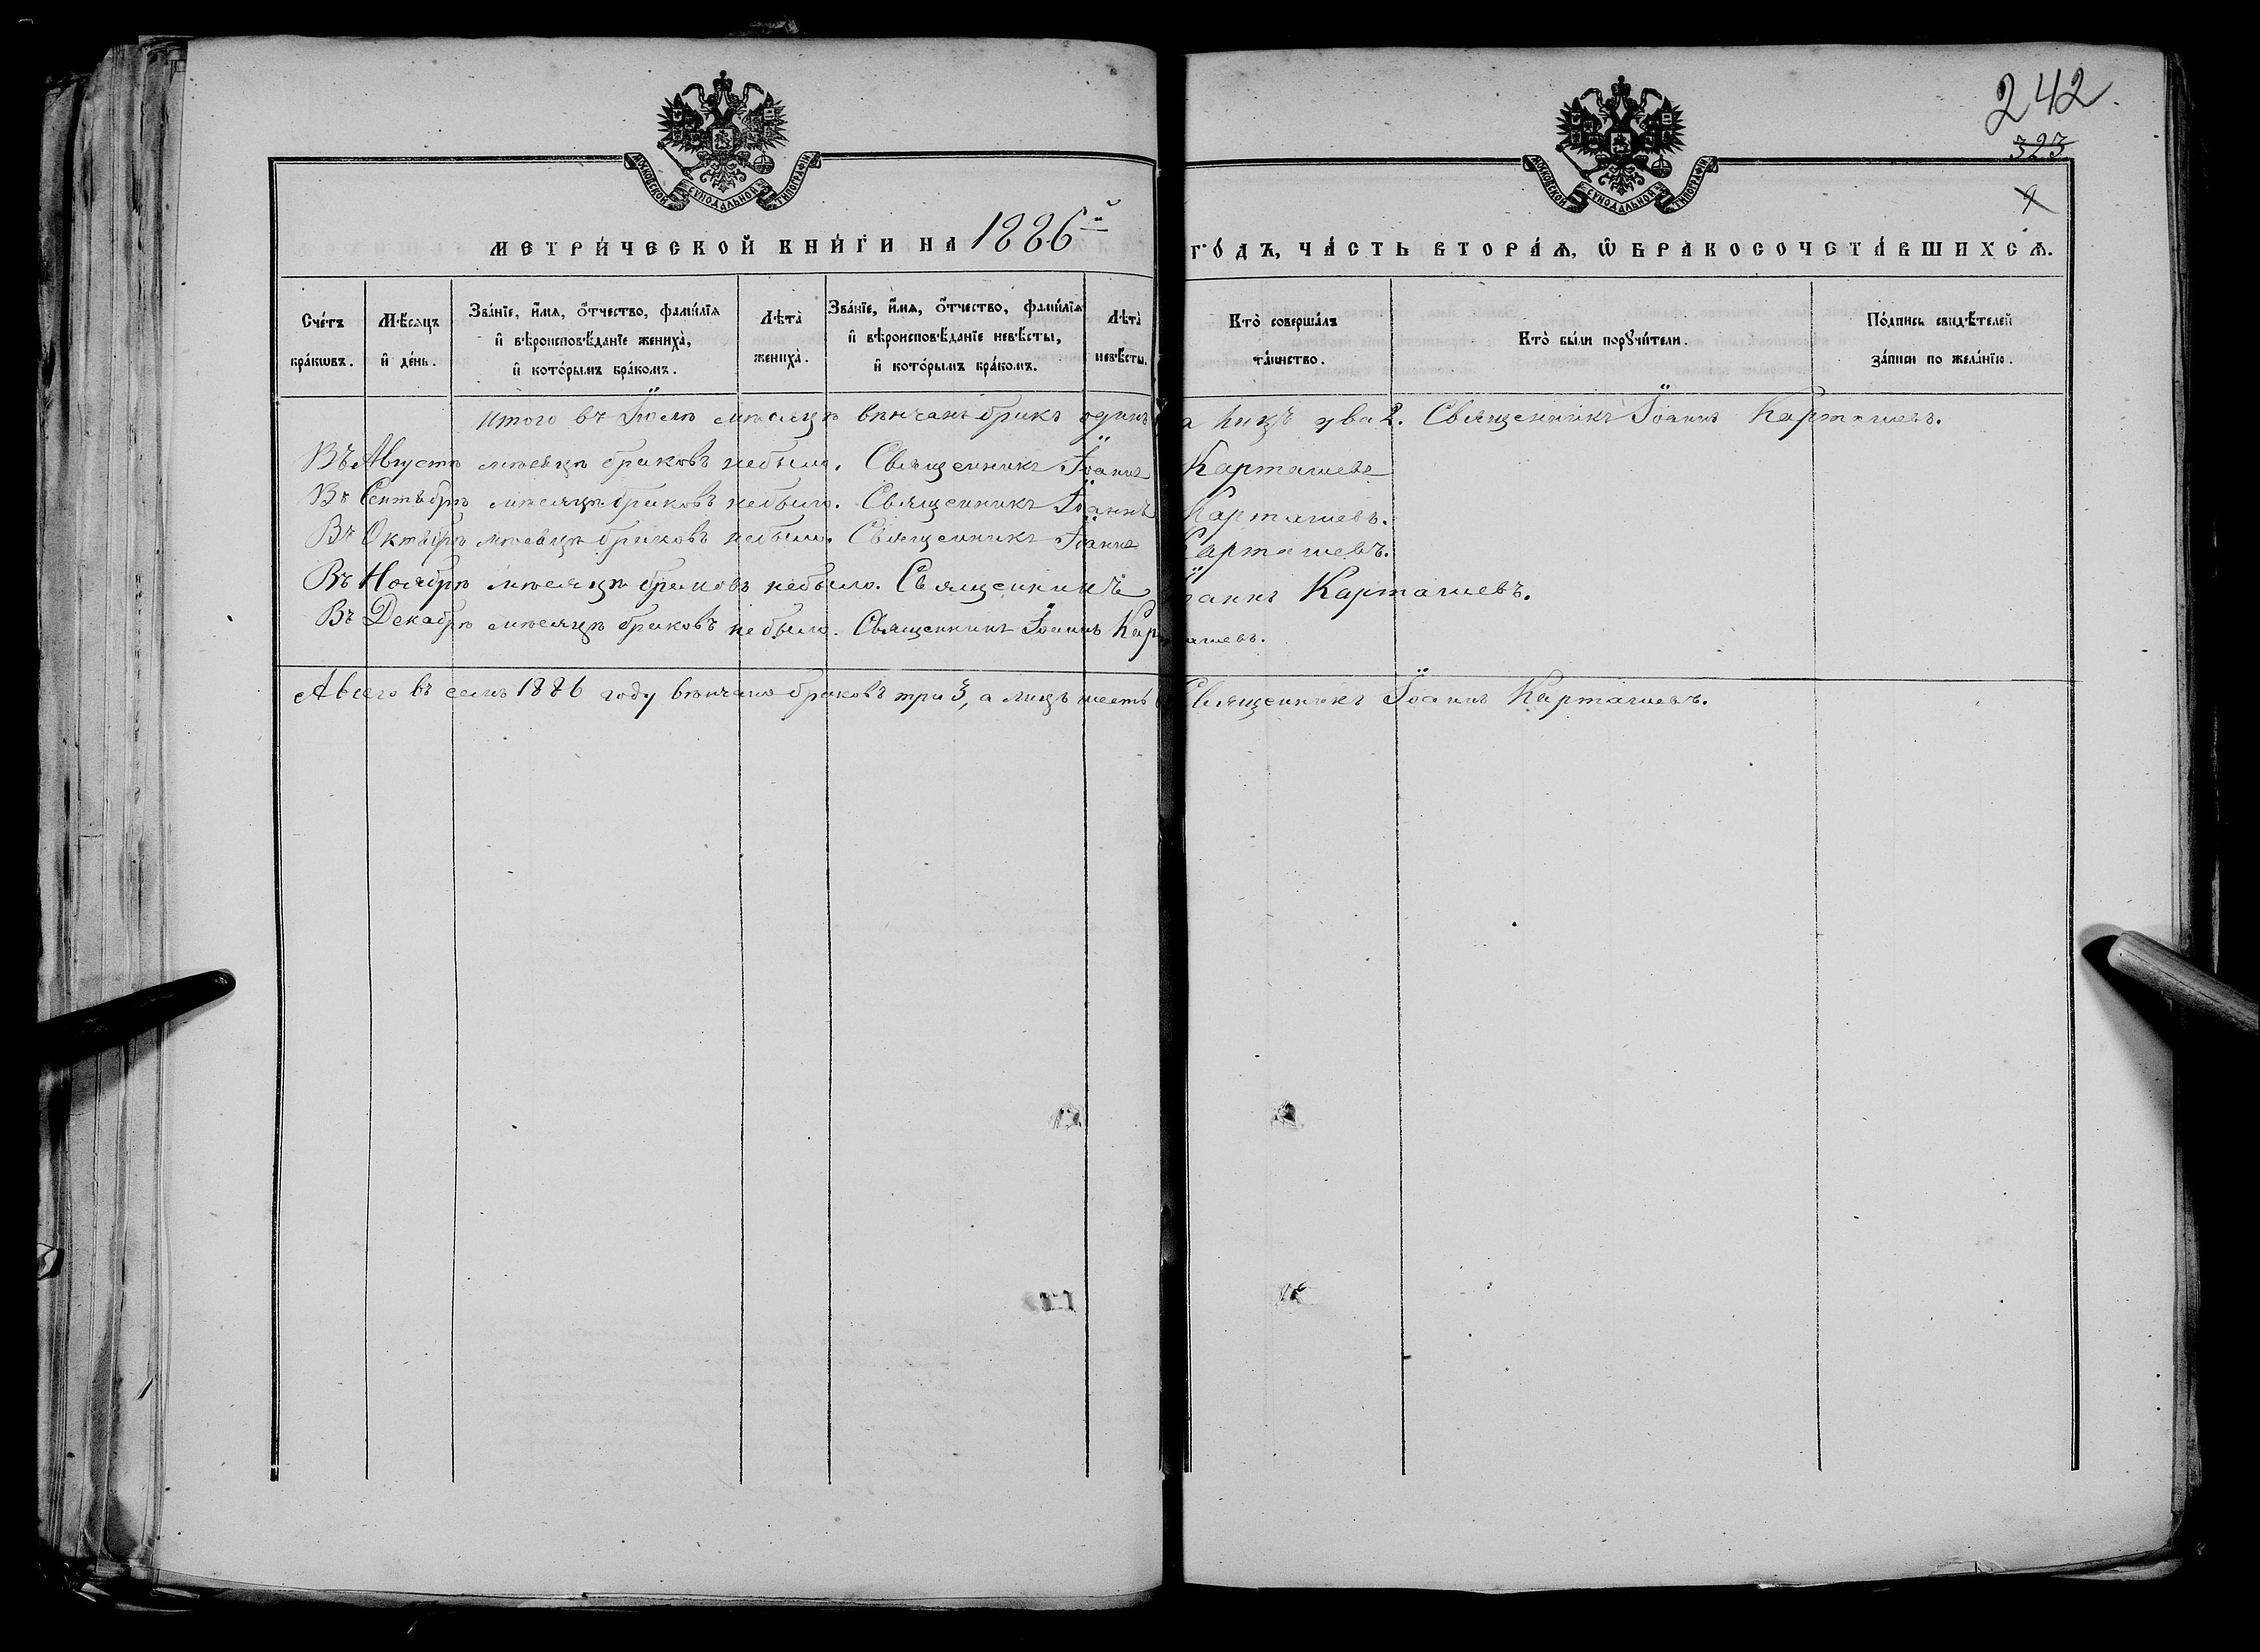 242.
323
9
МОСКОВСКОЙ СѴНОДАЛЬНОЙ ТИПОГРАФІИ
МОСКОВСКОЙ СѴНОДАЛЬНОЙ ТИПОГРАФІИ
МЕТРИ́ЧЕСКОЙ КНИ́ГИ НА 1886й ГО́ДЪ, ЧА́СТЬ ВТОРА́Ѧ, Ѽ БРАКОСОЧЕТА́ВШИХСѦ.
Сче́тъ бра́кѡвъ.
Мѣ́сѧцъ и҆ де́нь.
Зва́нїе, и҆́мѧ, ѻ҆́тчество, фами́лїѧ и҆ вѣроисповѣ́данїе жениха̀, и҆ кото́рымъ бра́комъ.
Лѣта̀ жениха̀.
Зва́нїе, и҆́мѧ, ѻ҆́тчество, фами́лїѧ и҆ вѣроисповѣ́данїе невѣ́сты, и҆ кото́рымъ бра́комъ.
Лѣта̀ невѣ́сты.
Кто̀ соверша́лъ та́инство.
Кто̀ бы́ли порꙋчи́тели.
По́дпись свидѣ́телей за́писи по жела́нїю.
Итого въ Іюлѣ мѣсяцѣ вѣнчанъ бракъ одинъ а лицъ два 2. Священникъ Іоаннъ Карташевъ.
Въ Августѣ мѣсяцѣ браковъ небыло. Священникъ Іоаннъ Карташевъ
Въ Сентябрѣ мѣсяцѣ браковъ небыло. Священникъ Іоаннъ Карташевъ.
Въ Октябрѣ мѣсяцѣ браковъ небыло. Священникъ Іоаннъ Карташевъ.
Въ Ноябрѣ мѣсяцѣ браковъ небыло. Священникъ Іоаннъ Карташевъ.
Въ Декабрѣ мѣсяцѣ браковъ небыло. Священникъ Іоаннъ Карташевъ.
А всего въ семъ 1886 году вѣнчано браковъ три 3, а лицъ шесть Священникъ Іоаннъ Карташевъ.